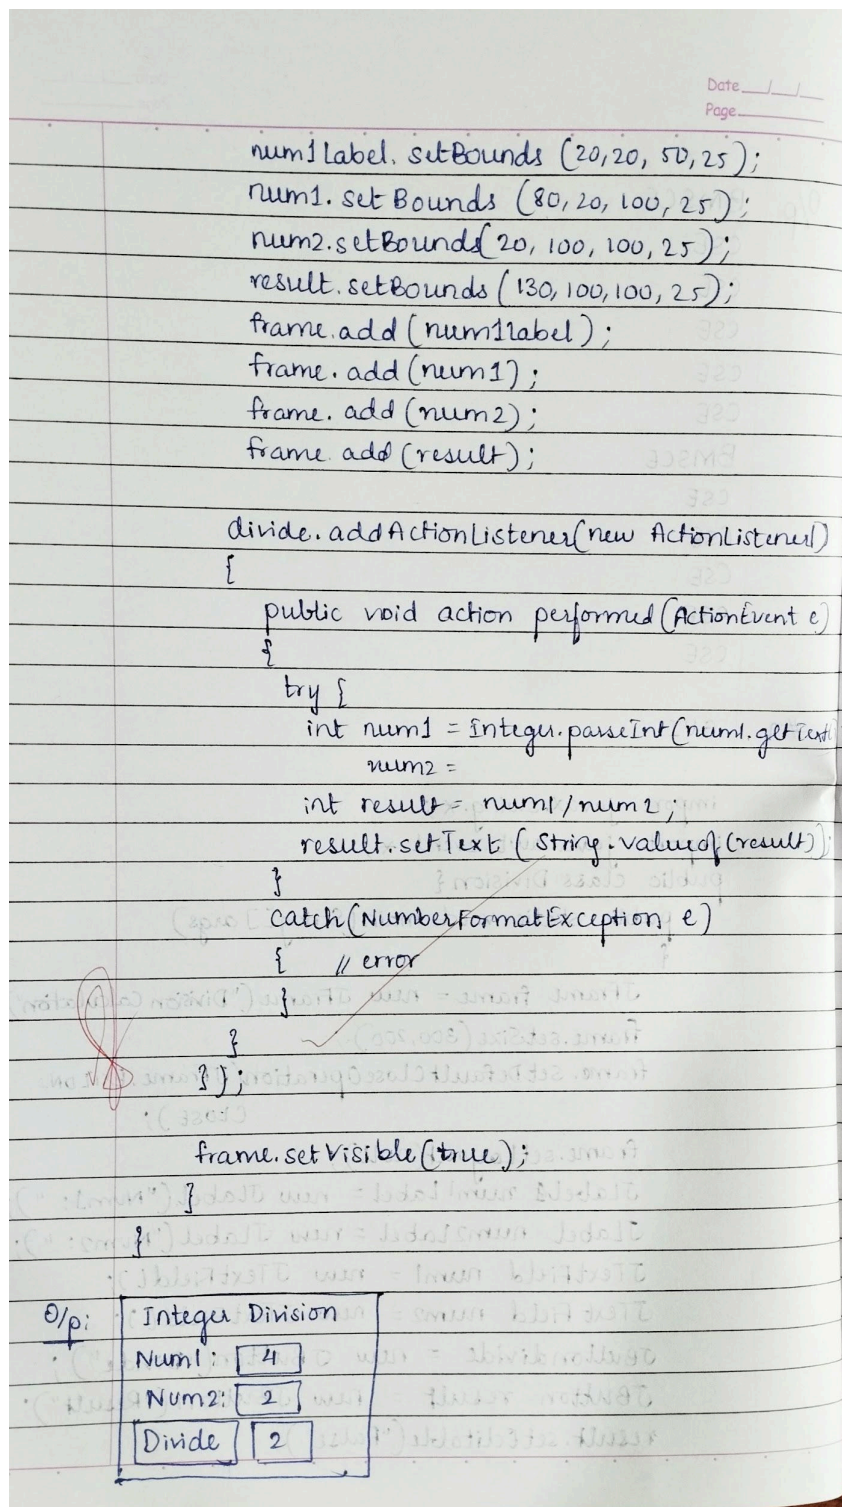 Date
Page
num1label. setBounds (20,20, 50,25);
num1. setBounds (80,20,100,25);
num2.setBounds(20, 100, 100, 25);
result.setBounds (130,100,100, 25);
frame.add (num1label);
frame. add (num1);
frame. add (num2);
frame. add (result);
divide.addActionListener(new ActionListener()
{
public void action performed (ActionEvent e)
{
try {
int num1 = Integer.parseInt(num1.getText(
num2 =
int result = num1/num2;
result.setText (String.valueof(result));
}
catch(NumberFormatException e)
{ // error
}
}
});
frame.setVisible(true);
}
}
O/p:
Integer Division
Num1: 4
Num2: 2
Divide 2